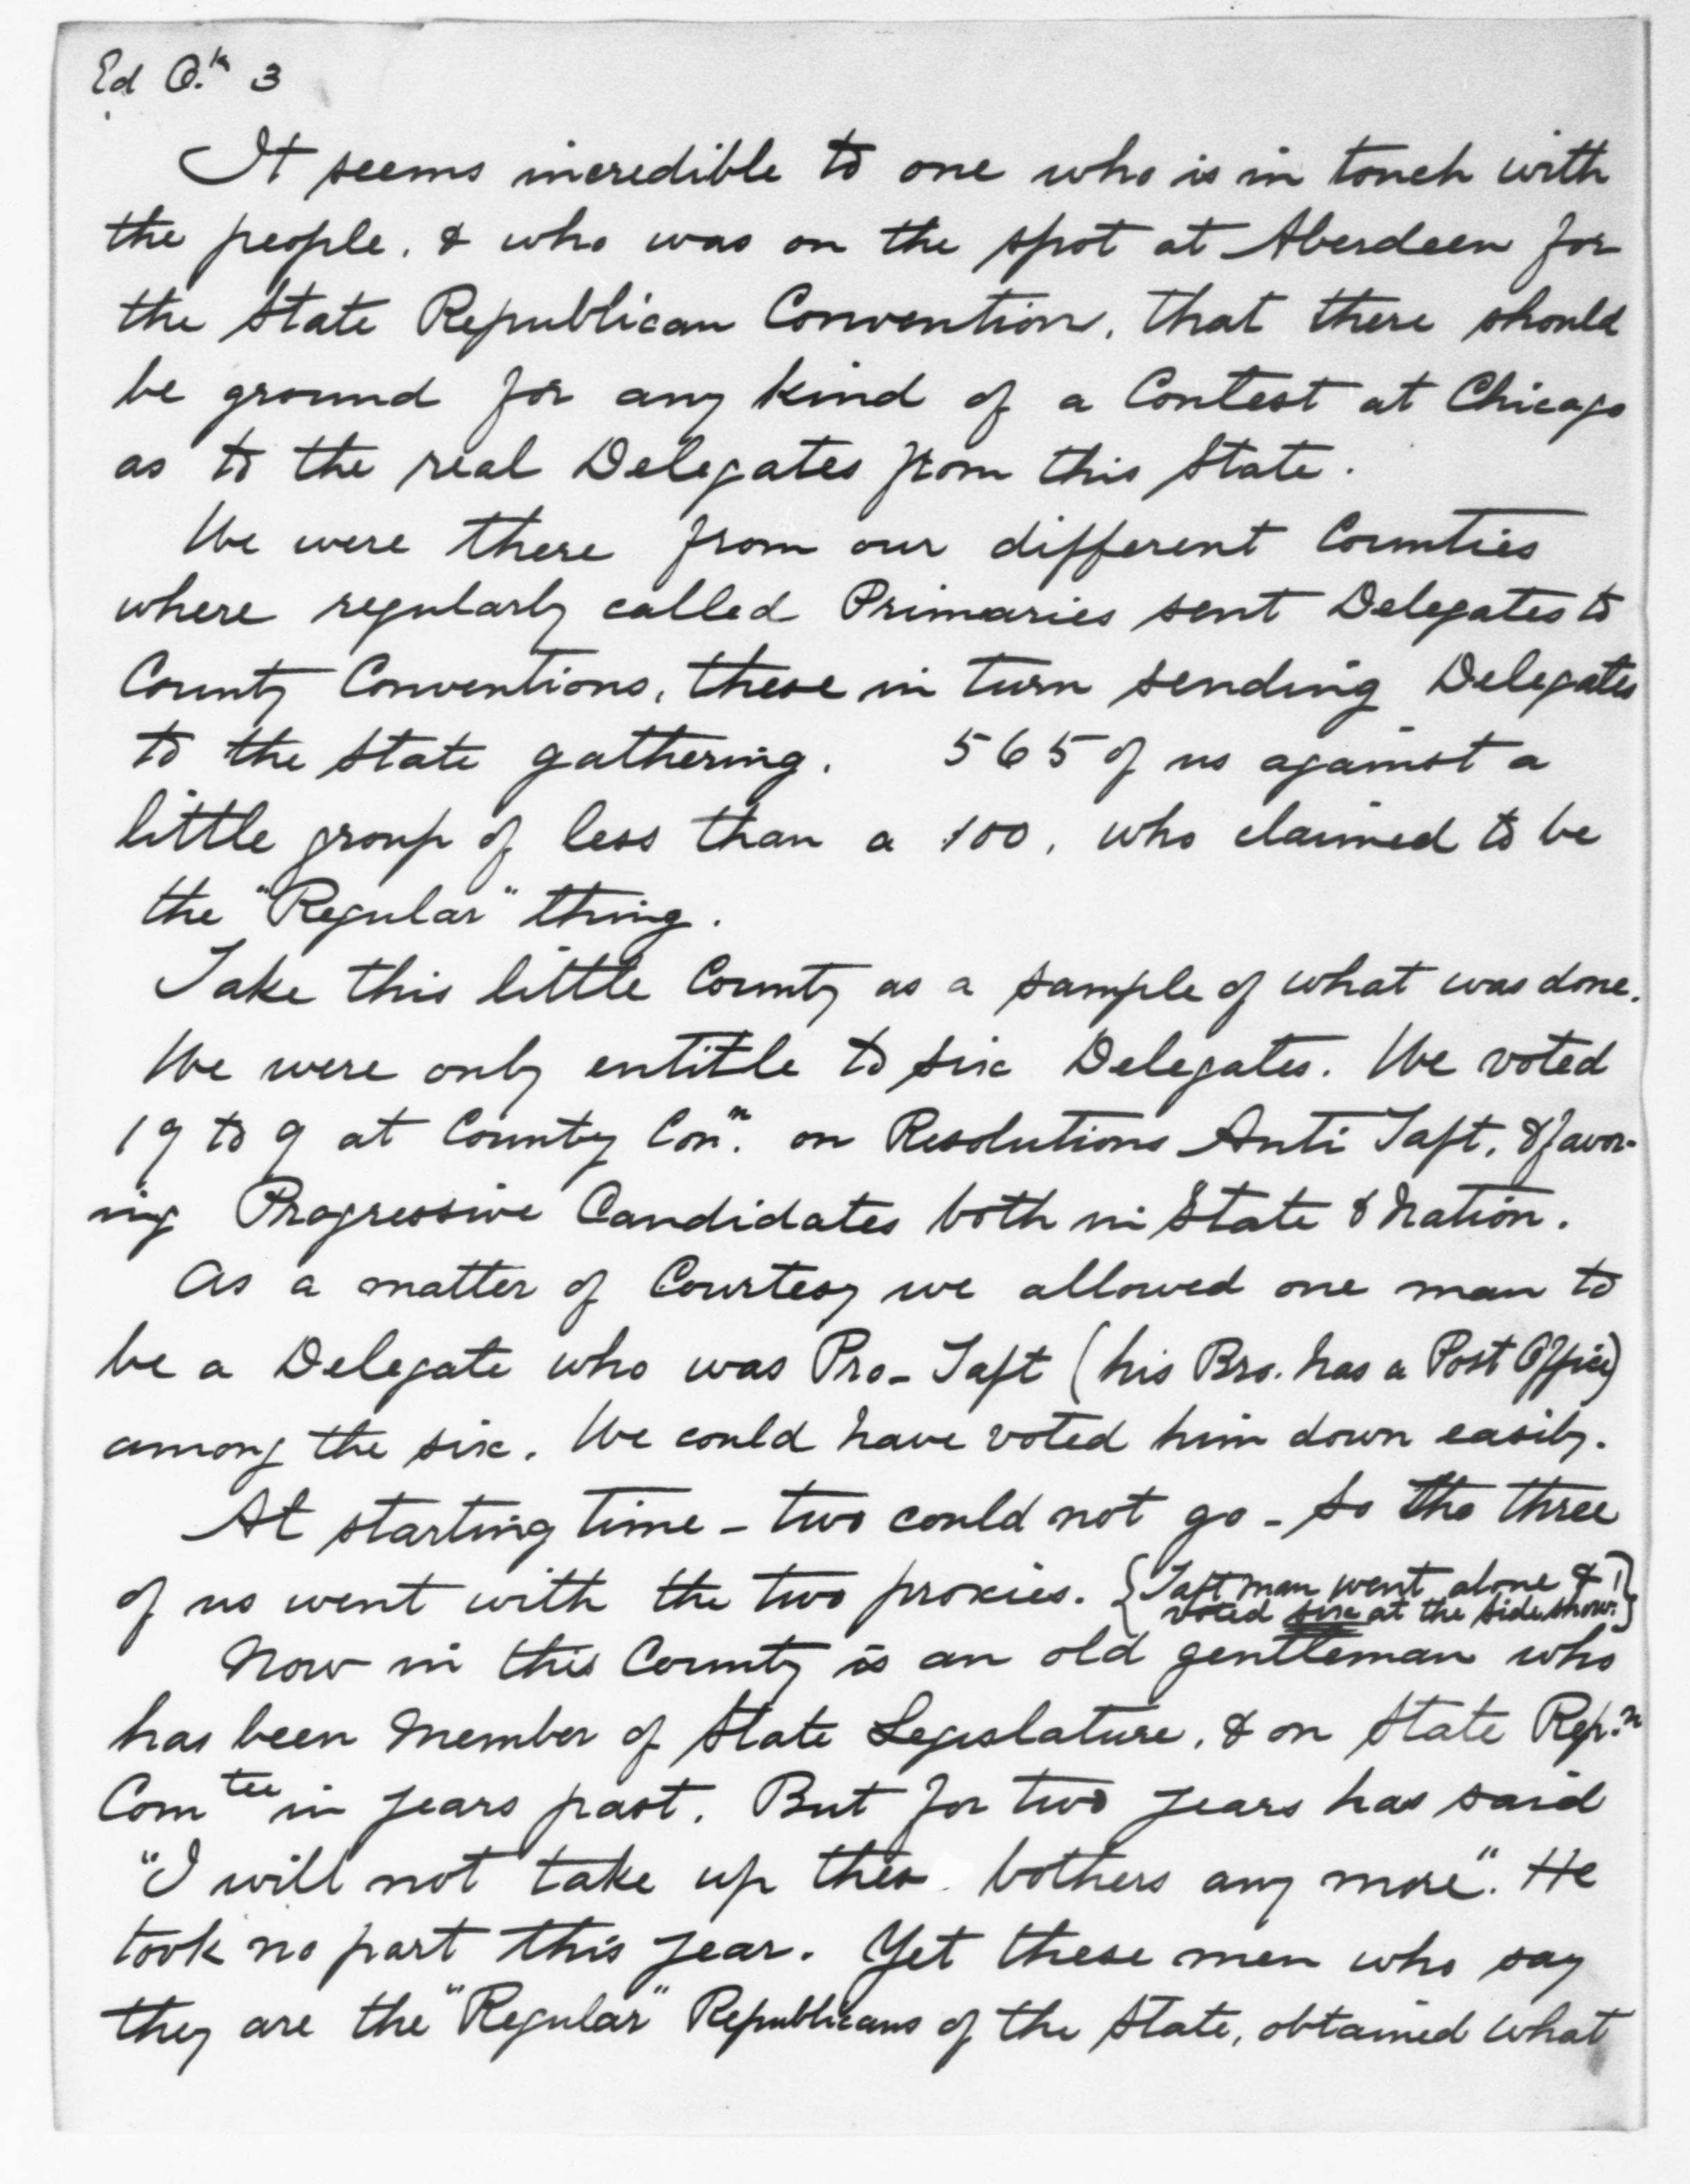 Ed O.k 3
It seems incredible to one who is in touch with
the people, & who was on the spot at Aberdeen for
the State Republican Convention, that there should
be ground for any kind of a Contest at Chicago
as to the real Delegates from this State.
We were there from our different Counties
where regularly called Primaries sent Delegates to
County Conventions, these in turn sending Delegates
to the State gathering. 565 of us against a
little group of less than a 100, who claimed to be
the "Regular" thing.
Take this little County as a sample of what was done.
We were only entitle to six Delegates. We voted
19 to 9 at County Con.n on Resolutions Anti Taft, & favor-
ing Progressive Candidates both in State & Nation.
As a matter of Courtesy we allowed one man to
be a Delegate who was Pro-Taft (his Bro. has a Post Office)
among the six. We could have voted him down easily.
At starting time - two could not go - So the three
of us went with the two proxies. {Taft man went alone &
voted six at the side show!}
Now in this County is an old gentleman who
has been Member of State Legislature, & on State Rep.n
Com tee in years past. But for two years has said
"I will not take up these bothers any more". He
took no part this year. Yet these men who say
they are the "Regular" Republicans of the State, obtained what